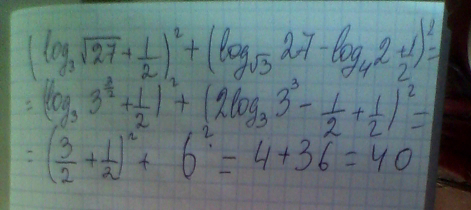 (log₃√27 + 1/2)² + (log_√3 27 - log₄2 + 1/2)² =
= (log₃ 3^(3/2) + 1/2)² + (2log₃ 3³ - 1/2 + 1/2)² =
= (3/2 + 1/2)² + 6² = 4 + 36 = 40